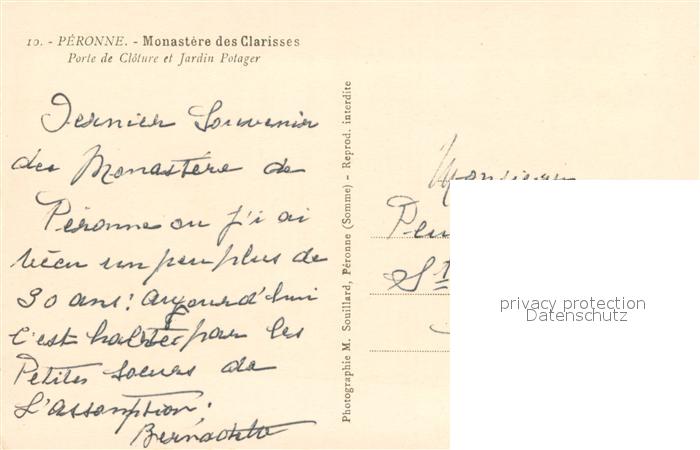 10. - PÉRONNE. - Monastère des Clarisses
Porte de Clôture et Jardin Potager
Dernier Souvenir
du Monastère de
Péronne ou j'i ai
vécu un peu plus de
30 ans! aujourd'hui
c'est habité par les
Petites Soeurs de
L'assomption!
Photographie M. Souillard, Péronne (Somme) — Reprod. interdite
Monsieur
privacy protection
Datenschutz